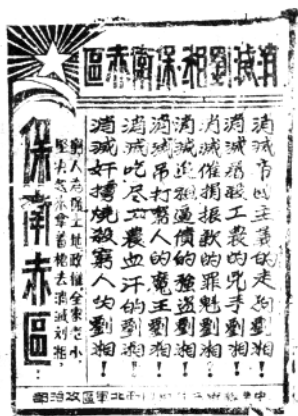 消滅劉湘·保衛赤區
消滅帝國主義的走狗劉湘!
消滅屠殺工農的兇手劉湘!
消滅催捐掁款的罪魁劉湘!
消滅追租逼債的強盜劉湘!
消滅吊打窮人的魔王劉湘!
消滅吃尽工農血汗的劉湘!
消滅奸擄燒殺窮人的劉湘!
保衛赤區!
窮人為保土地政權全家老小,
堅決起來拿着槍去消滅刘湘,
北軍區政治部